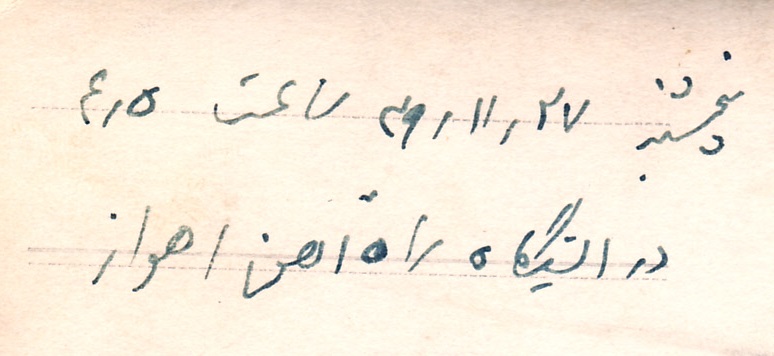 پنجشنبه ۲۷ر۱۱ر۳۹ ساعت ۴ر۵
در ایستگاه راه آهن اهواز